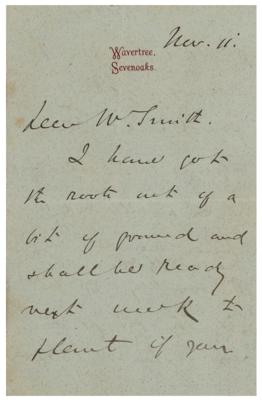 Nov. 11.
Wavertree,
Sevenoaks.
Dear Mr Smith.
I have got
the roots out of a
bit of ground and
shall be ready
next week to
plant if you